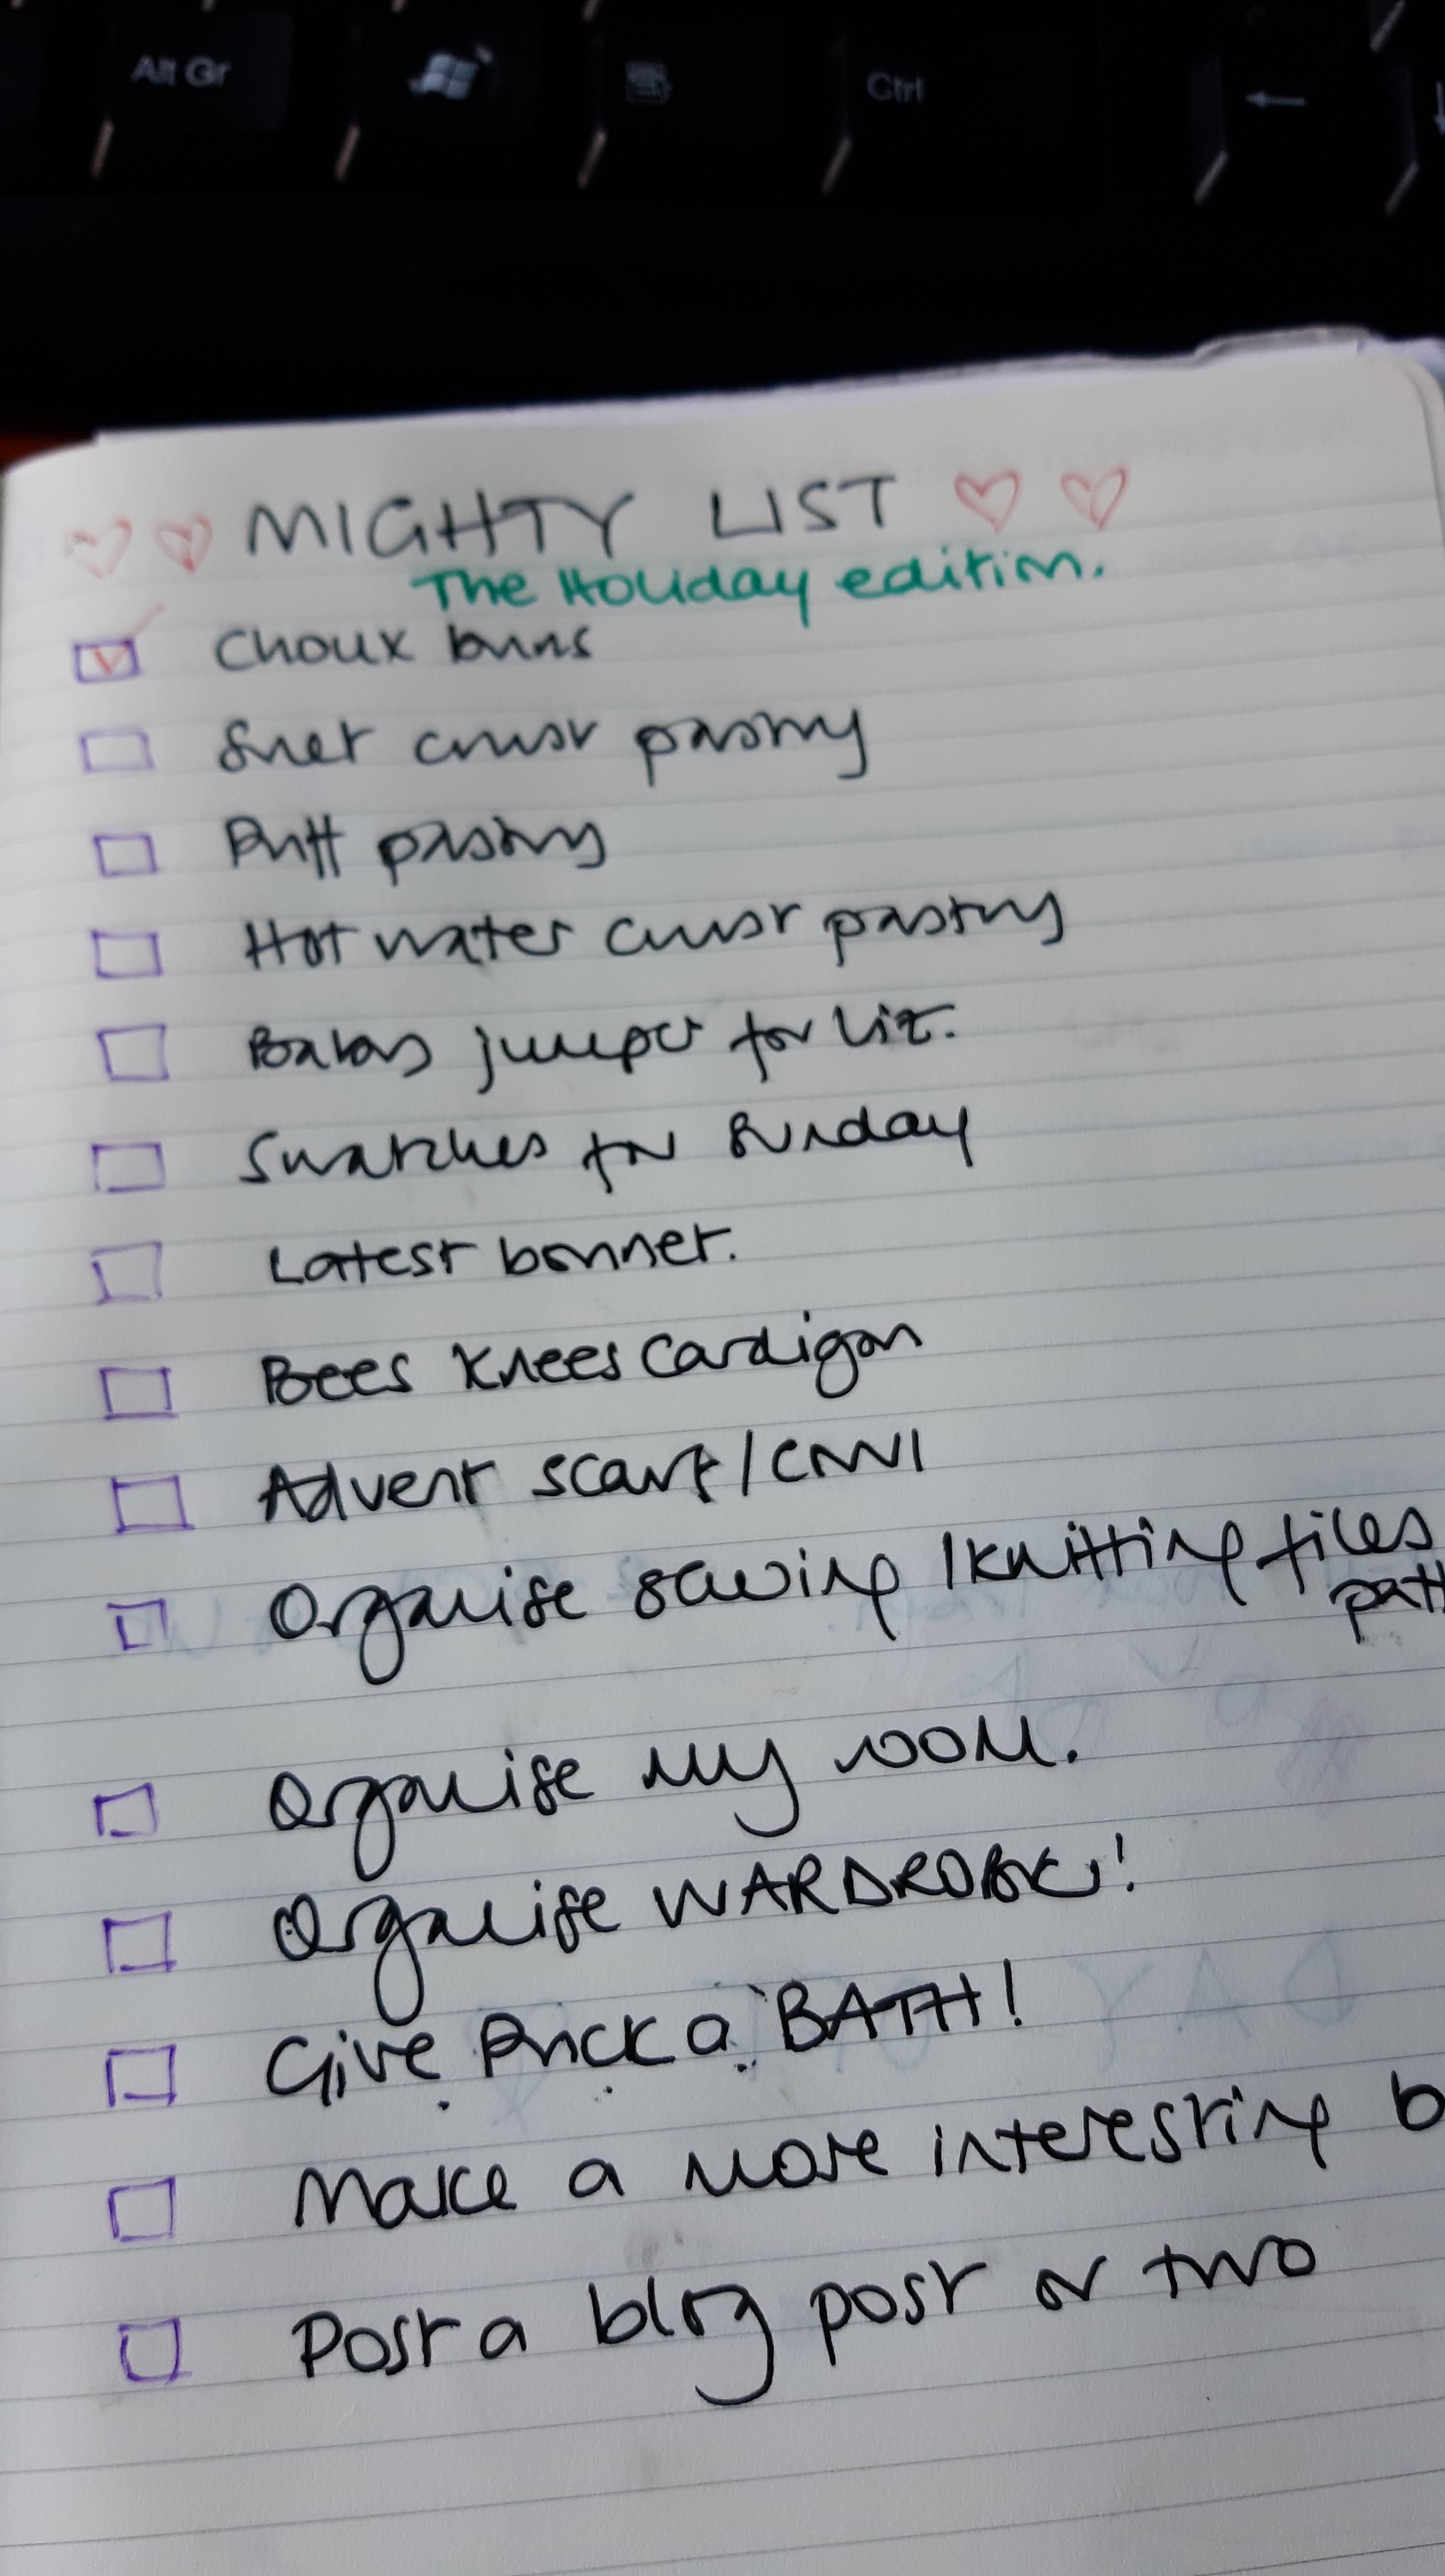 Alt Gr
Ctrl
←
MIGHTY LIST
The Holiday edition.
Choux buns
Suet crust pastry
Puff pastry
Hot water crust pastry
Babas jumper for Liz.
Swatches for Sunday
Latest bonnet.
Bees Knees Cardigan
Advent scarf/COWL
Organise sewing/knitting files
patt
Organise my room.
Organise WARDROBE!
Give Puck a BATH!
Make a more interesting b
Post a blog post or two